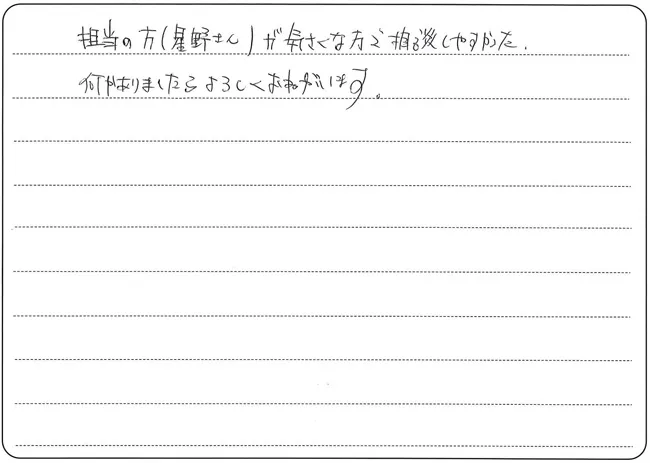 担当の方(星野さん)が気さくな方で相談しやすかった.
何かありましたらよろしくおねがいします。